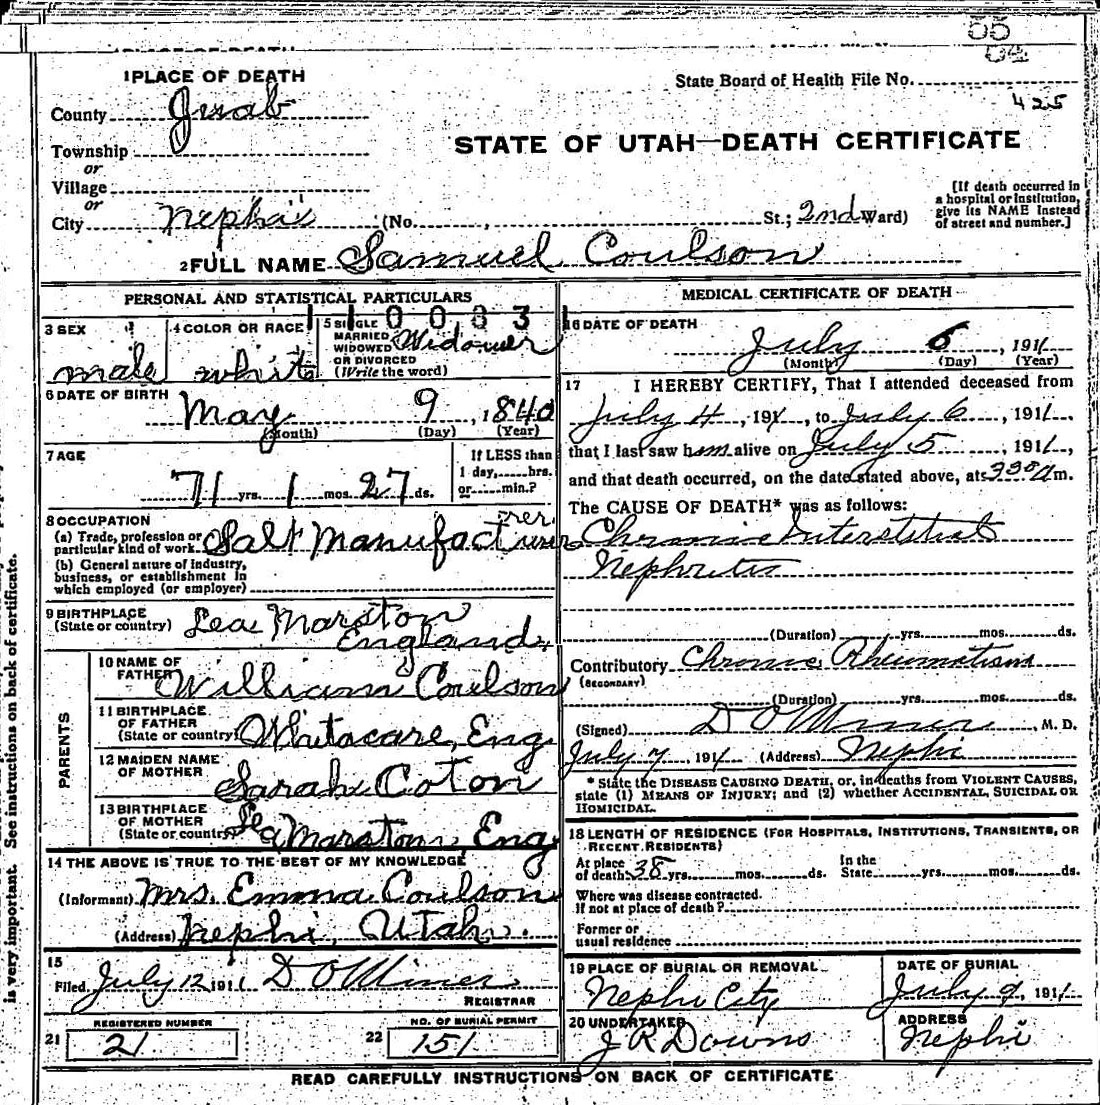 55
04
1 PLACE OF DEATH
State Board of Health File No.
425
County Juab
STATE OF UTAH—DEATH CERTIFICATE
Township
or
Village
or
City Nephi (No. , St.; 2nd Ward)
[If death occurred in
a hospital or institution,
give its NAME instead
of street and number.]
2 FULL NAME Samuel Coulson
PERSONAL AND STATISTICAL PARTICULARS
0083
3 SEX
male
4 COLOR OR RACE
white
5 SINGLE
MARRIED
WIDOWED
OR DIVORCED
(Write the word)
Widower
6 DATE OF BIRTH
May 9, 1840
(Month) (Day) (Year)
7 AGE
71 yrs. 1 mos. 27 ds.
If LESS than
1 day, hrs.
or min.?
8 OCCUPATION
(a) Trade, profession or
particular kind of work
Salt Manufacturer
rer
(b) General nature of industry,
business, or establishment in
which employed (or employer)
9 BIRTHPLACE
(State or country)
Lea Marston
England
PARENTS
10 NAME OF
FATHER
William Coulson
11 BIRTHPLACE
OF FATHER
(State or country)
Whitacare, Eng
12 MAIDEN NAME
OF MOTHER
Sarah Coton
13 BIRTHPLACE
OF MOTHER
(State or country)
Lea Marston, Eng
14 THE ABOVE IS TRUE TO THE BEST OF MY KNOWLEDGE
(Informant) Mrs. Emma Coulson
(Address) Nephi, Utah.
15
Filed July 12 1911 D O Miner
REGISTRAR
21 REGISTERED NUMBER
21
22 NO. OF BURIAL PERMIT
151
MEDICAL CERTIFICATE OF DEATH
16 DATE OF DEATH
July 6, 1911
(Month) (Day) (Year)
17 I HEREBY CERTIFY, That I attended deceased from
July 4, 1911, to July 6, 1911,
that I last saw him alive on July 5, 1911,
and that death occurred, on the date stated above, at 330 a m.
The CAUSE OF DEATH* was as follows:
Chronic Interstitial
Nephritis
(Duration) yrs. mos. ds.
Contributory Chronic Rheumatism
(SECONDARY)
(Duration) yrs. mos. ds.
(Signed) D O Miner, M. D.
July 7, 1911 (Address) Nephi
* State the DISEASE CAUSING DEATH, or, in deaths from VIOLENT CAUSES,
state (1) MEANS OF INJURY; and (2) whether ACCIDENTAL, SUICIDAL OR
HOMICIDAL.
18 LENGTH OF RESIDENCE (FOR HOSPITALS, INSTITUTIONS, TRANSIENTS, OR
RECENT RESIDENTS)
At place
of death 38 yrs. mos. ds.
In the
State yrs. mos. ds.
Where was disease contracted.
If not at place of death?
Former or
usual residence
19 PLACE OF BURIAL OR REMOVAL
Nephi City
DATE OF BURIAL
July 9, 1911
20 UNDERTAKER
J R Downs
ADDRESS
Nephi
READ CAREFULLY INSTRUCTIONS ON BACK OF CERTIFICATE
is very important. See instructions on back of certificate.